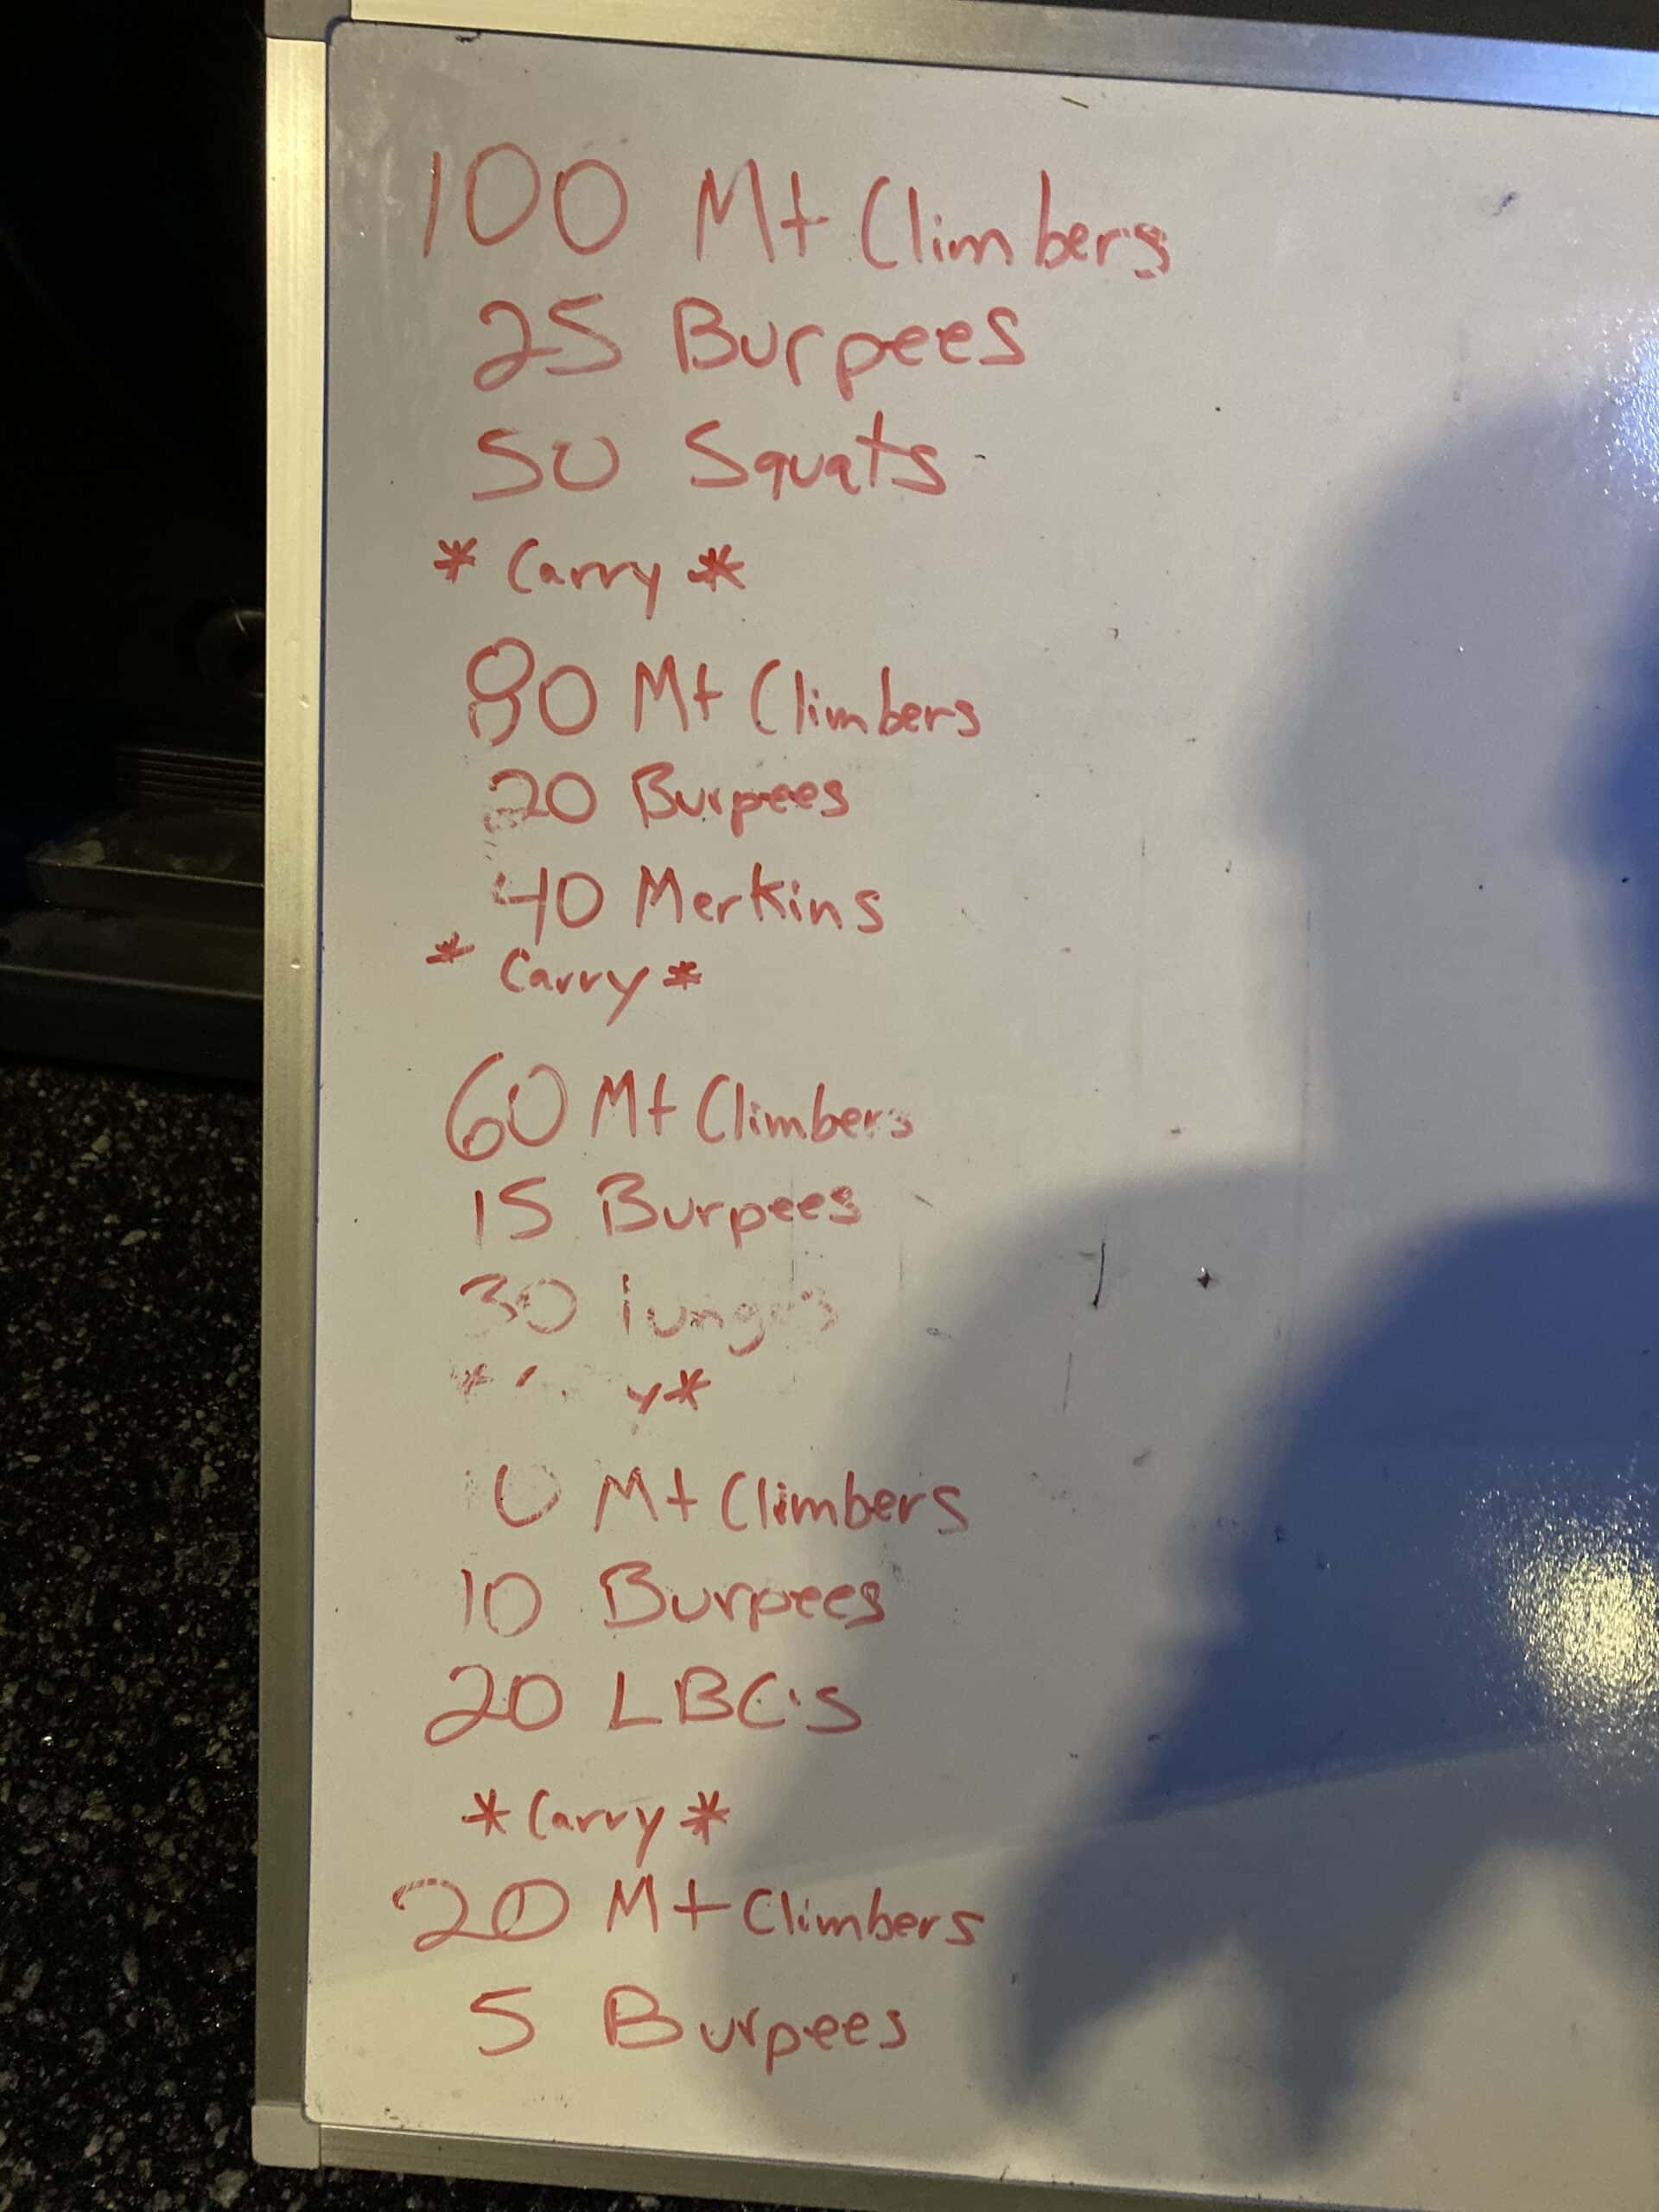 100 Mt Climbers
25 Burpees
50 Squats
* Carry *
80 Mt Climbers
20 Burpees
40 Merkins
* Carry *
60 Mt Climbers
15 Burpees
30 lunges
Mt Climbers
10 Burpees
20 LBC's
* Carry *
20 Mt Climbers
5 Burpees